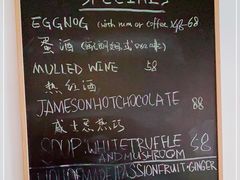 SPECIALS
EGGNOG (with rum or coffee) 58
蛋酒
MULLED WINE 58
热红酒
JAMESON HOT CHOCOLATE 88
SOUP, WHITE TRUFFLE 68
AND MUSHROOM
HOMEMADE PASSIONFRUIT+GINGER